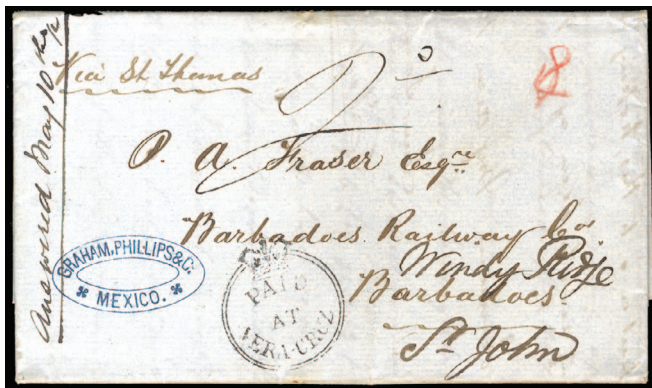 Answered May 10th
Via St. Thomas
2/0
P. A. Fraser Esqre
Barbadoes Railway Co
Windy Ridge
Barbadoes
St John
GRAHAM, PHILLIPS & Co.
* MEXICO. *
PAID
AT
VERA-CRUZ